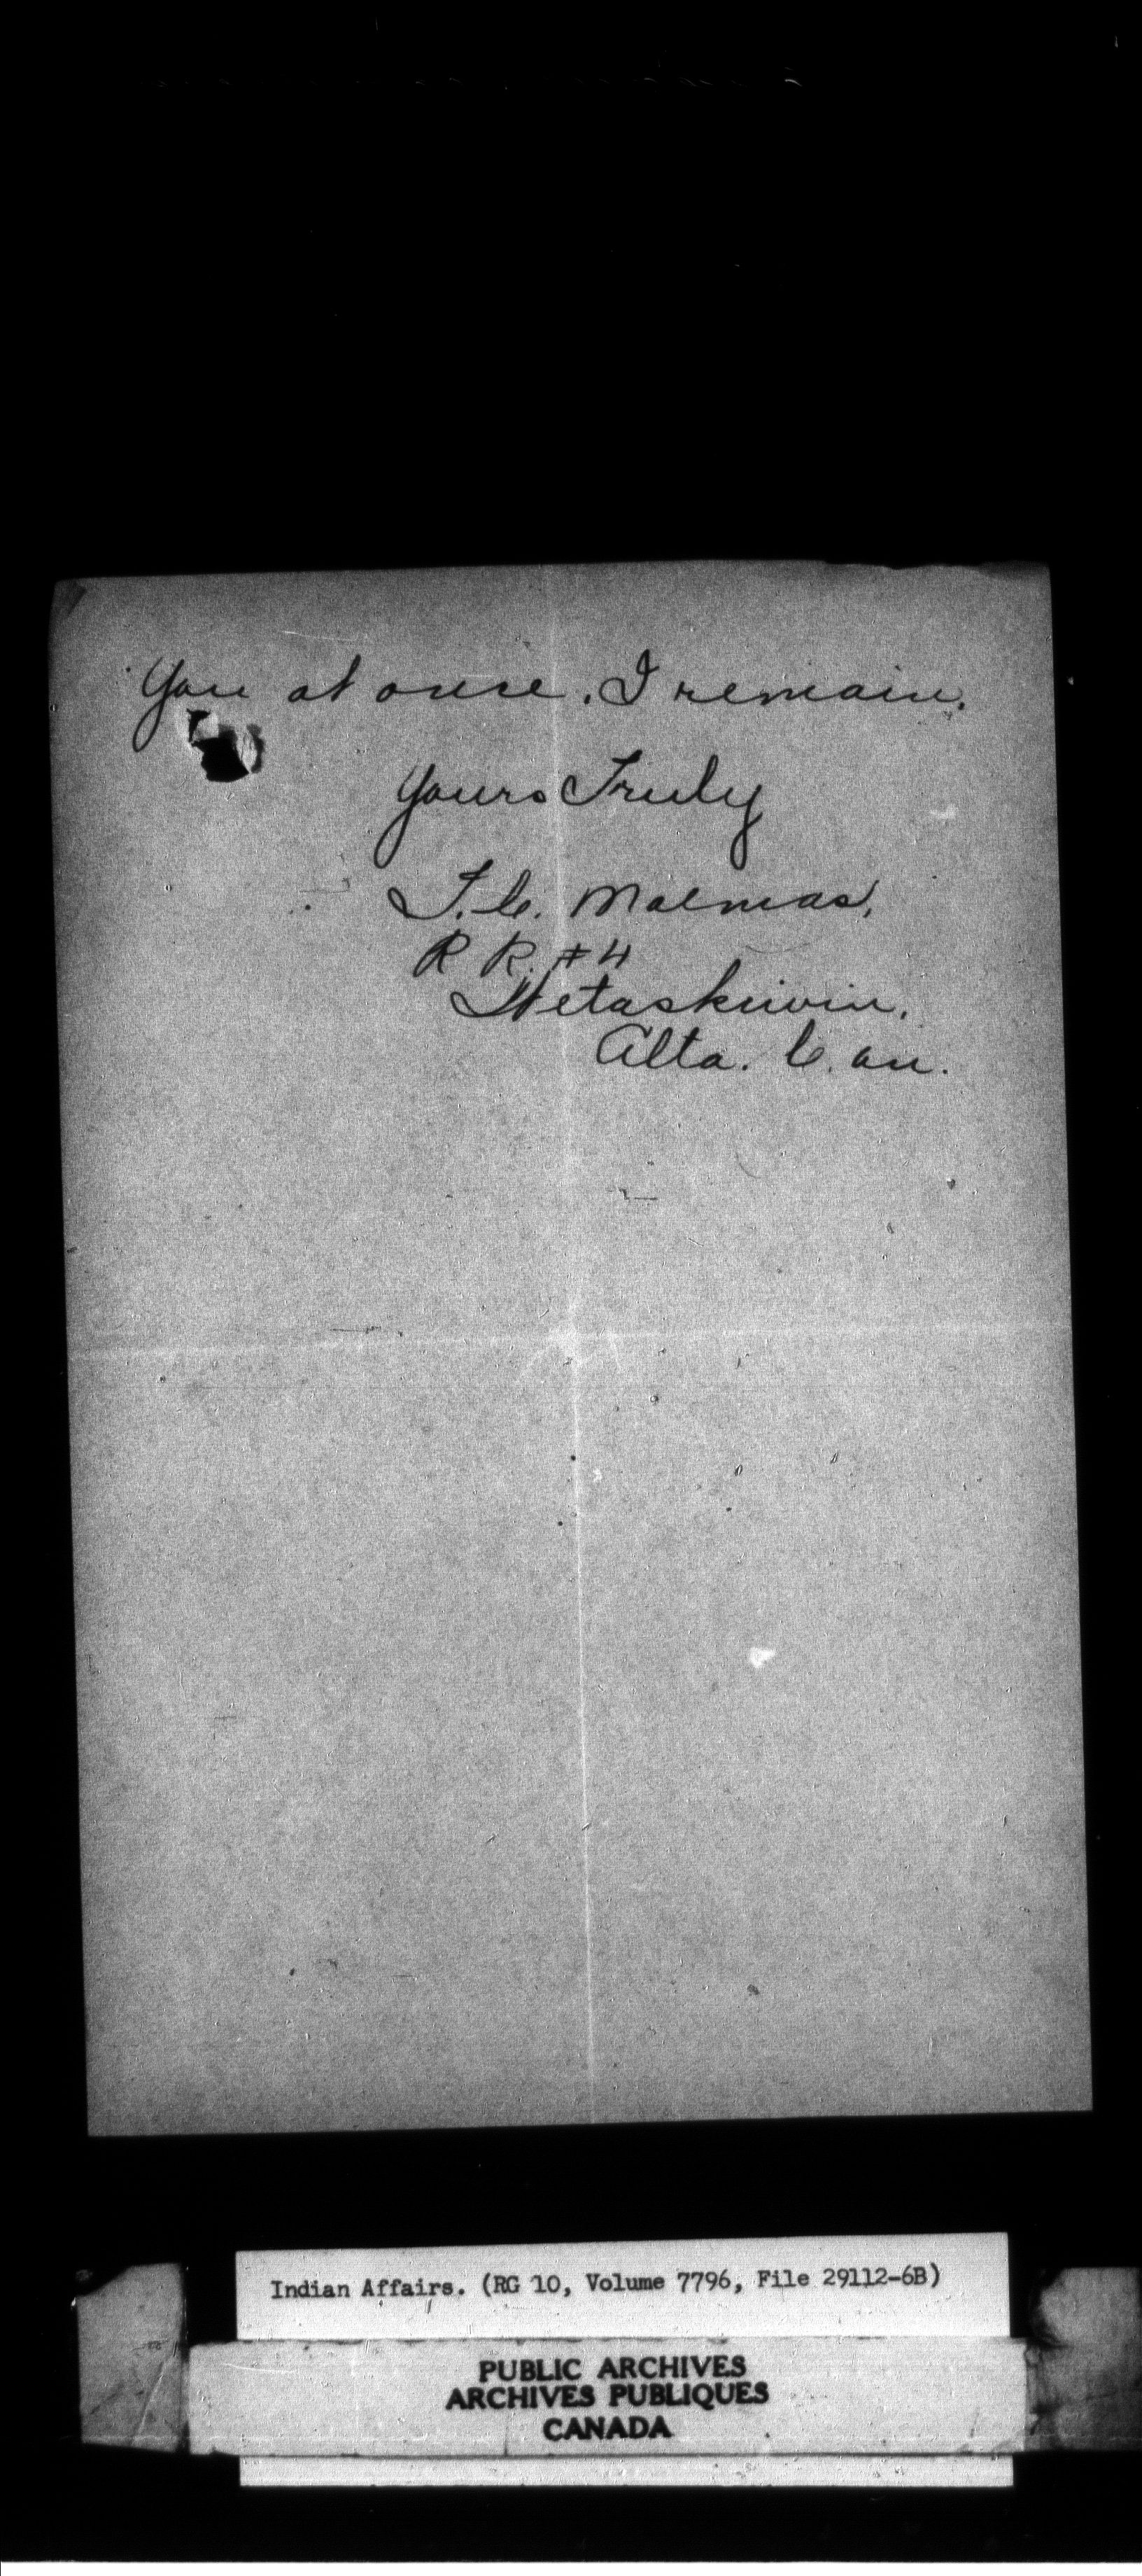 you at once. I remain,
Yours Truly
T.C. Malmas,
R R. #4
Wetaskiwin,
Alta. Can.
Indian Affairs. (RG 10, Volume 7796, File 29112-6B)
PUBLIC ARCHIVES
ARCHIVES PUBLIQUES
CANADA